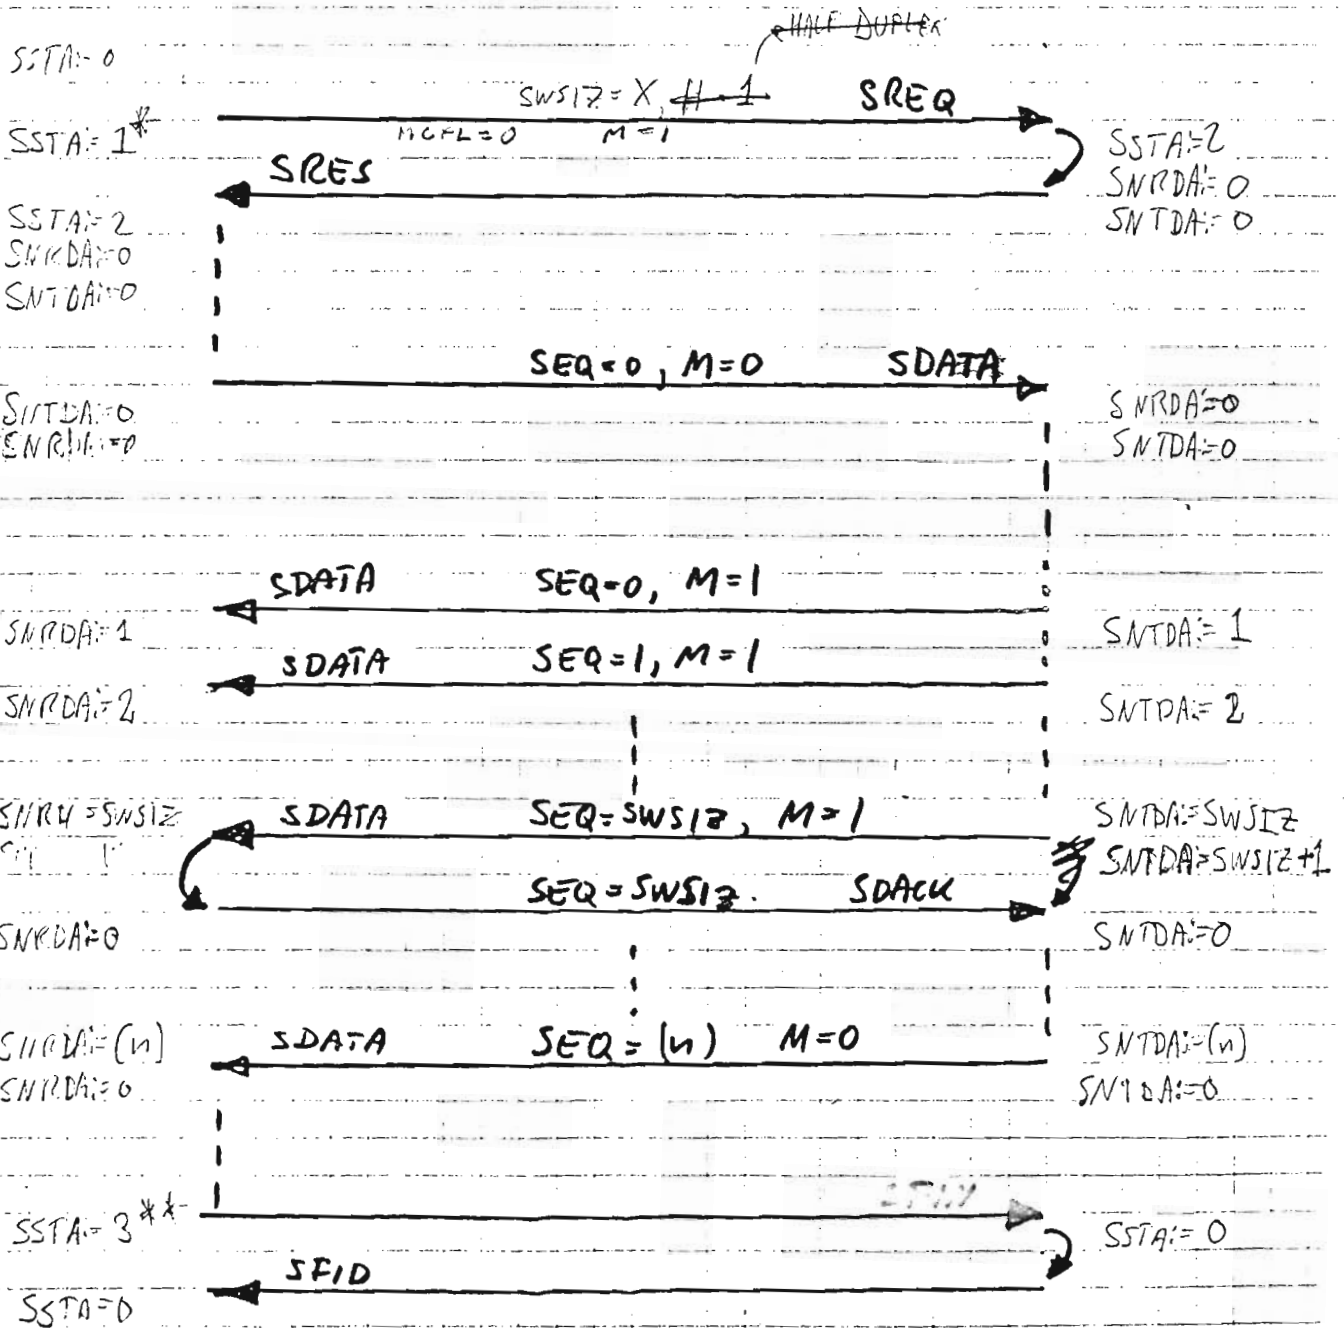 HALF DUPLEX
SSTA:=0
SWSIZ=X, H=1 SREQ
SSTA:=1*
M=1
SSTA:=2
SRES
SNRDA:=0
SSTA:=2
SNTDA:=0
SNRDA:=0
SNTDA:=0
SEQ=0, M=0 SDATA
SNTDA:=0
SNRDA:=0
SNRDA:=0
SNTDA:=0
SDATA SEQ=0, M=1
SNRDA:=1
SNTDA:=1
SDATA SEQ=1, M=1
SNRDA:=2
SNTDA:=2
SDATA SEQ=SWSIZ, M=1
SNTDA:=SWSIZ
SNTDA:=SWSIZ+1
SEQ=SWSIZ. SDACK
SNRDA:=0
SNTDA:=0
SDATA SEQ=(n) M=0
SNRDA:=(n)
SNTDA:=(n)
SNRDA:=0
SNTDA:=0
SSTA:=3**
SSTA:=0
SFID
SSTA=0